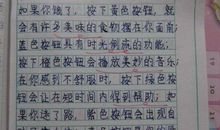 如果你饿了，按下黄色按钮，就
会有许多美味的食物摆在你面前；
蓝色按钮具有时光倒流的功能；
按下橙色按钮会播放美妙的音乐；
在你感到不舒服时，按下绿色按
钮会让在短时间内得到帮助；如
果你迷了路，紫色按钮会出现自